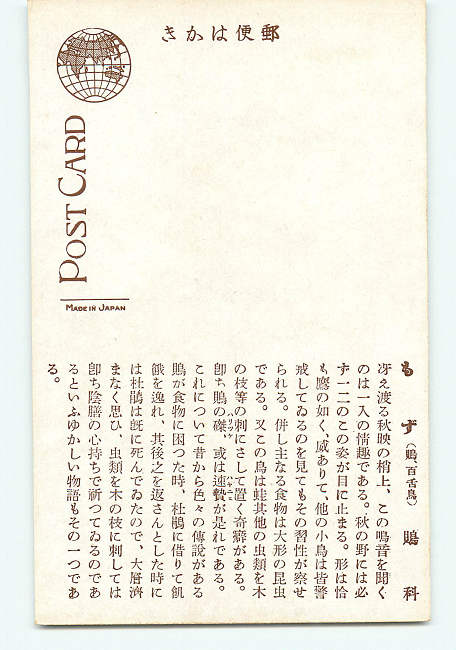 郵便はかき
POST CARD
MADE IN JAPAN
もず（鵙、百舌鳥） 鵙科
冴え渡る秋映の梢上、この鳴音を聞く
のは一入の情趣である。秋の野には必
ず一二のこの姿が目に止まる。形は恰
も鷹の如く、威ありて、他の小鳥は皆警
戒してゐるのを見てもその習性が察せ
られる。併し主なる食物は大形の昆虫
である。又この鳥は蛙其他の虫類を木
の枝等の刺にさして置く奇癖がある。
卽ち鵙の磔、或は速贄が是れである。
これについて昔から色々の傳說がある
鵙が食物に困つた時、杜鵑に借りて飢
餓を逸れ、其後之を返さんとした時に
は杜鵑は既に死んでゐたので、大層濟
まなく思ひ、虫類を木の枝に刺しては
卽ち陰膳の心持ちで祈つてゐるのであ
るといふゆかしい物語もその一つであ
る。